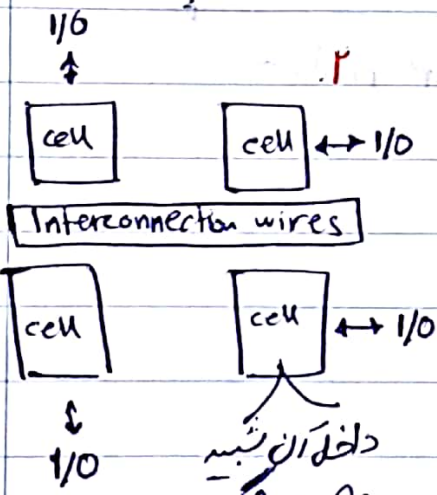 I/O
.۲
cell cell I/O
Interconnection wires
cell cell I/O
I/O داخل آن شبیه